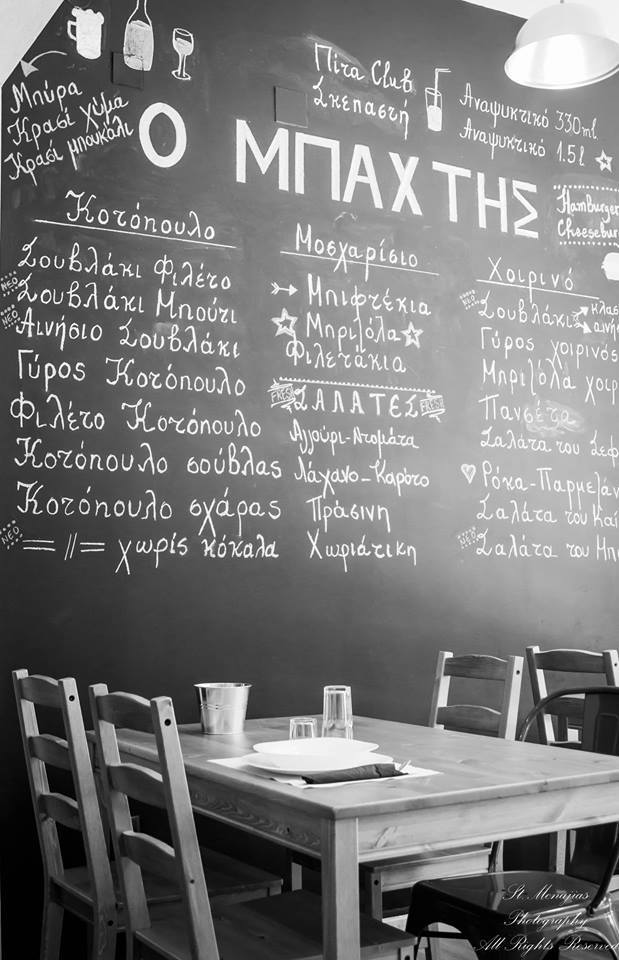 Μπύρα
Κρασί χύμα
Κρασί μπουκάλι
Πίτα Club
Σκεπαστή
Αναψυκτικό 330ml
Αναψυκτικό 1.5l
Ο ΜΠΑΧΤΗΣ
Hamburger
Κοτόπουλο
ΝΕΟ Σουβλάκι Φιλέτο
ΝΕΟ Σουβλάκι Μπούτι
Αινήσιο Σουβλάκι
Γύρος Κοτόπουλο
Φιλέτο Κοτόπουλο
Κοτόπουλο σούβλας
Κοτόπουλο σχάρας
ΝΕΟ = // = χωρίς κόκαλα
Μοσχαρίσιο
Μπιφτέκια
Μπριζόλα
Φιλετάκια
FRESH ΣΑΛΑΤΕΣ FRESH
Αγγούρι-Ντομάτα
Λάχανο-Καρότο
Πράσινη
Χωριάτικη
Χοιρινό
ΝΕΟ Σουβλάκι
Γύρος χοιρινός
Μπριζόλα χοιρ
Πανσέτα
Σαλάτα του Σεφ
Ρόκα-Παρμεζάν
Σαλάτα του Καί
ΝΕΟ Σαλάτα του Μπ
St. Menagias
Photography
All Rights Reserved